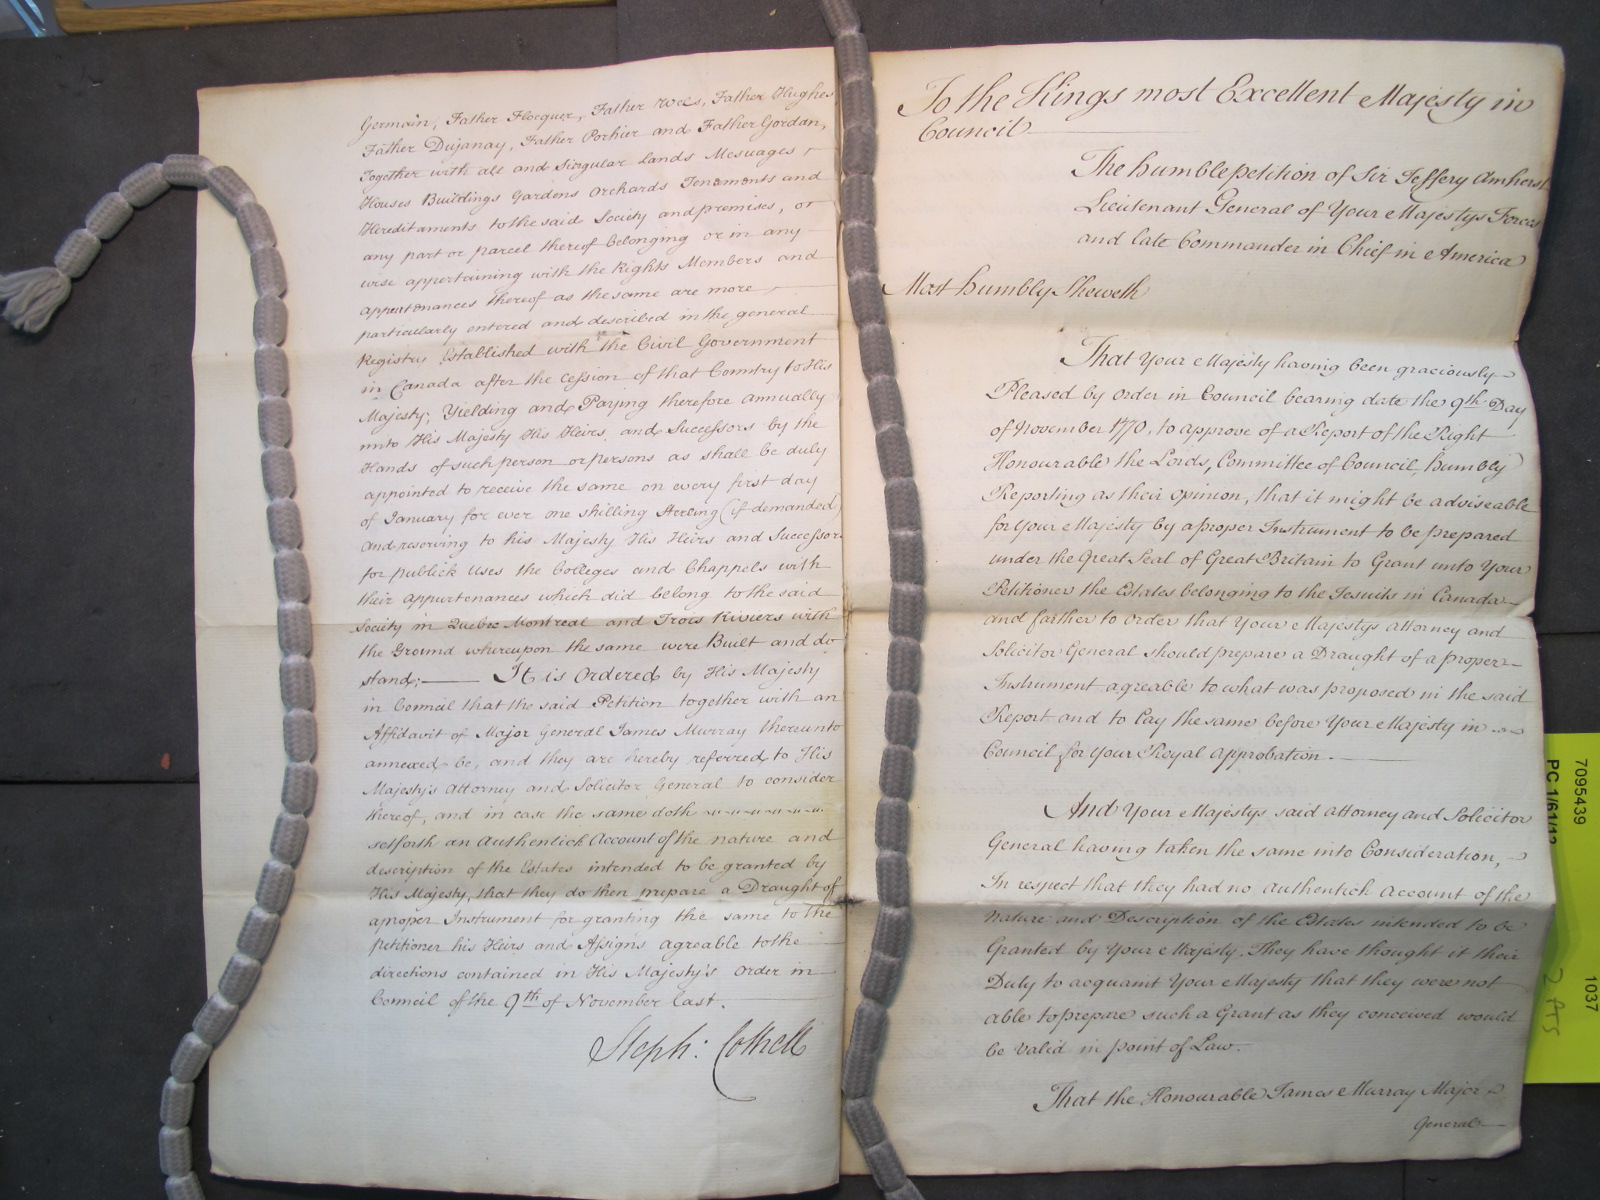 Germain, Father Flocquer, Father Roes, Father Hughes
Father Dujanay, Father Porhier and Father Gordan,
Together with all and Singular Lands Mesuages,
Houses Buildings Gardens Orchards Tenements and
Hereditaments to the said Society and premises, or
any part or parcel thereof belonging or in any
wise appertaining with the Rights Members and
appurtenances thereof as the same are more
particularly entered and described in the general
Registry Established with the Civil Government
in Canada after the Cession of that Country to His
Majesty; Yielding and Paying therefore annually
unto His Majesty His Heirs and Successors by the
Hands of such person or persons as shall be duly
appointed to receive the same on every first day
of January for ever one shilling Sterling (if demanded)
and reserving to his Majesty His Heirs and Successors
for publick Uses the Colleges and Chappels with
their appurtenances which did belong to the said
Society in Quebec Montreal and Trois Riviers with
the Ground whereupon the same were Built and do
stand; It is Ordered by His Majesty
in Council that the said Petition together with an
Affidavit of Major General James Murray thereunto
annexed be, and they are hereby referred to His
Majesty's Attorney and Solicitor General to consider
thereof, and in case the same doth
setforth an Authentick Account of the nature and
discription of the Estates intended to be granted by
His Majesty, that they do then prepare a Draught of
a proper Instrument for granting the same to the
petitioner his Heirs and Assigns agreable to the
directions contained in His Majesty's Order in
Council of the 9th of November last.
Steph: Cottrell
To the Kings most Excellent Majesty in
Council
The humble petition of Sir Jeffery Amherst
Lieutenant General of Your Majestys Forces
and late Commander in Chief in America
Most humbly Sheweth
That Your Majesty having been graciously
Pleased by Order in Council bearing date the 9th Day
of November 1770, to approve of a Report of the Right
Honourable the Lords, Committee of Council, humbly
Reporting as their Opinion, that it might be adviseable
for Your Majesty by a proper Instrument to be prepared
under the Great Seal of Great Britain to Grant unto Your
Petitioner the Estates belonging to the Jesuits in Canada
and farther to order that Your Majestys Attorney and
Solicitor General should prepare a Draught of a proper
Instrument agreable to what was proposed in the said
Report and to lay the same before Your Majesty in
Council for Your Royal Approbation.
And Your Majestys said Attorney and Solicitor
General having taken the same into Consideration,
In respect that they had no Authentick Account of the
Nature and Description of the Estates intended to be
Granted by Your Majesty, They have thought it their
Duty to acquaint Your Majesty that they were not
able to prepare such a Grant as they conceived would
be Valid in point of Law.
That the Honourable James Murray Major
General
7095439
PC 1/61/12
1037